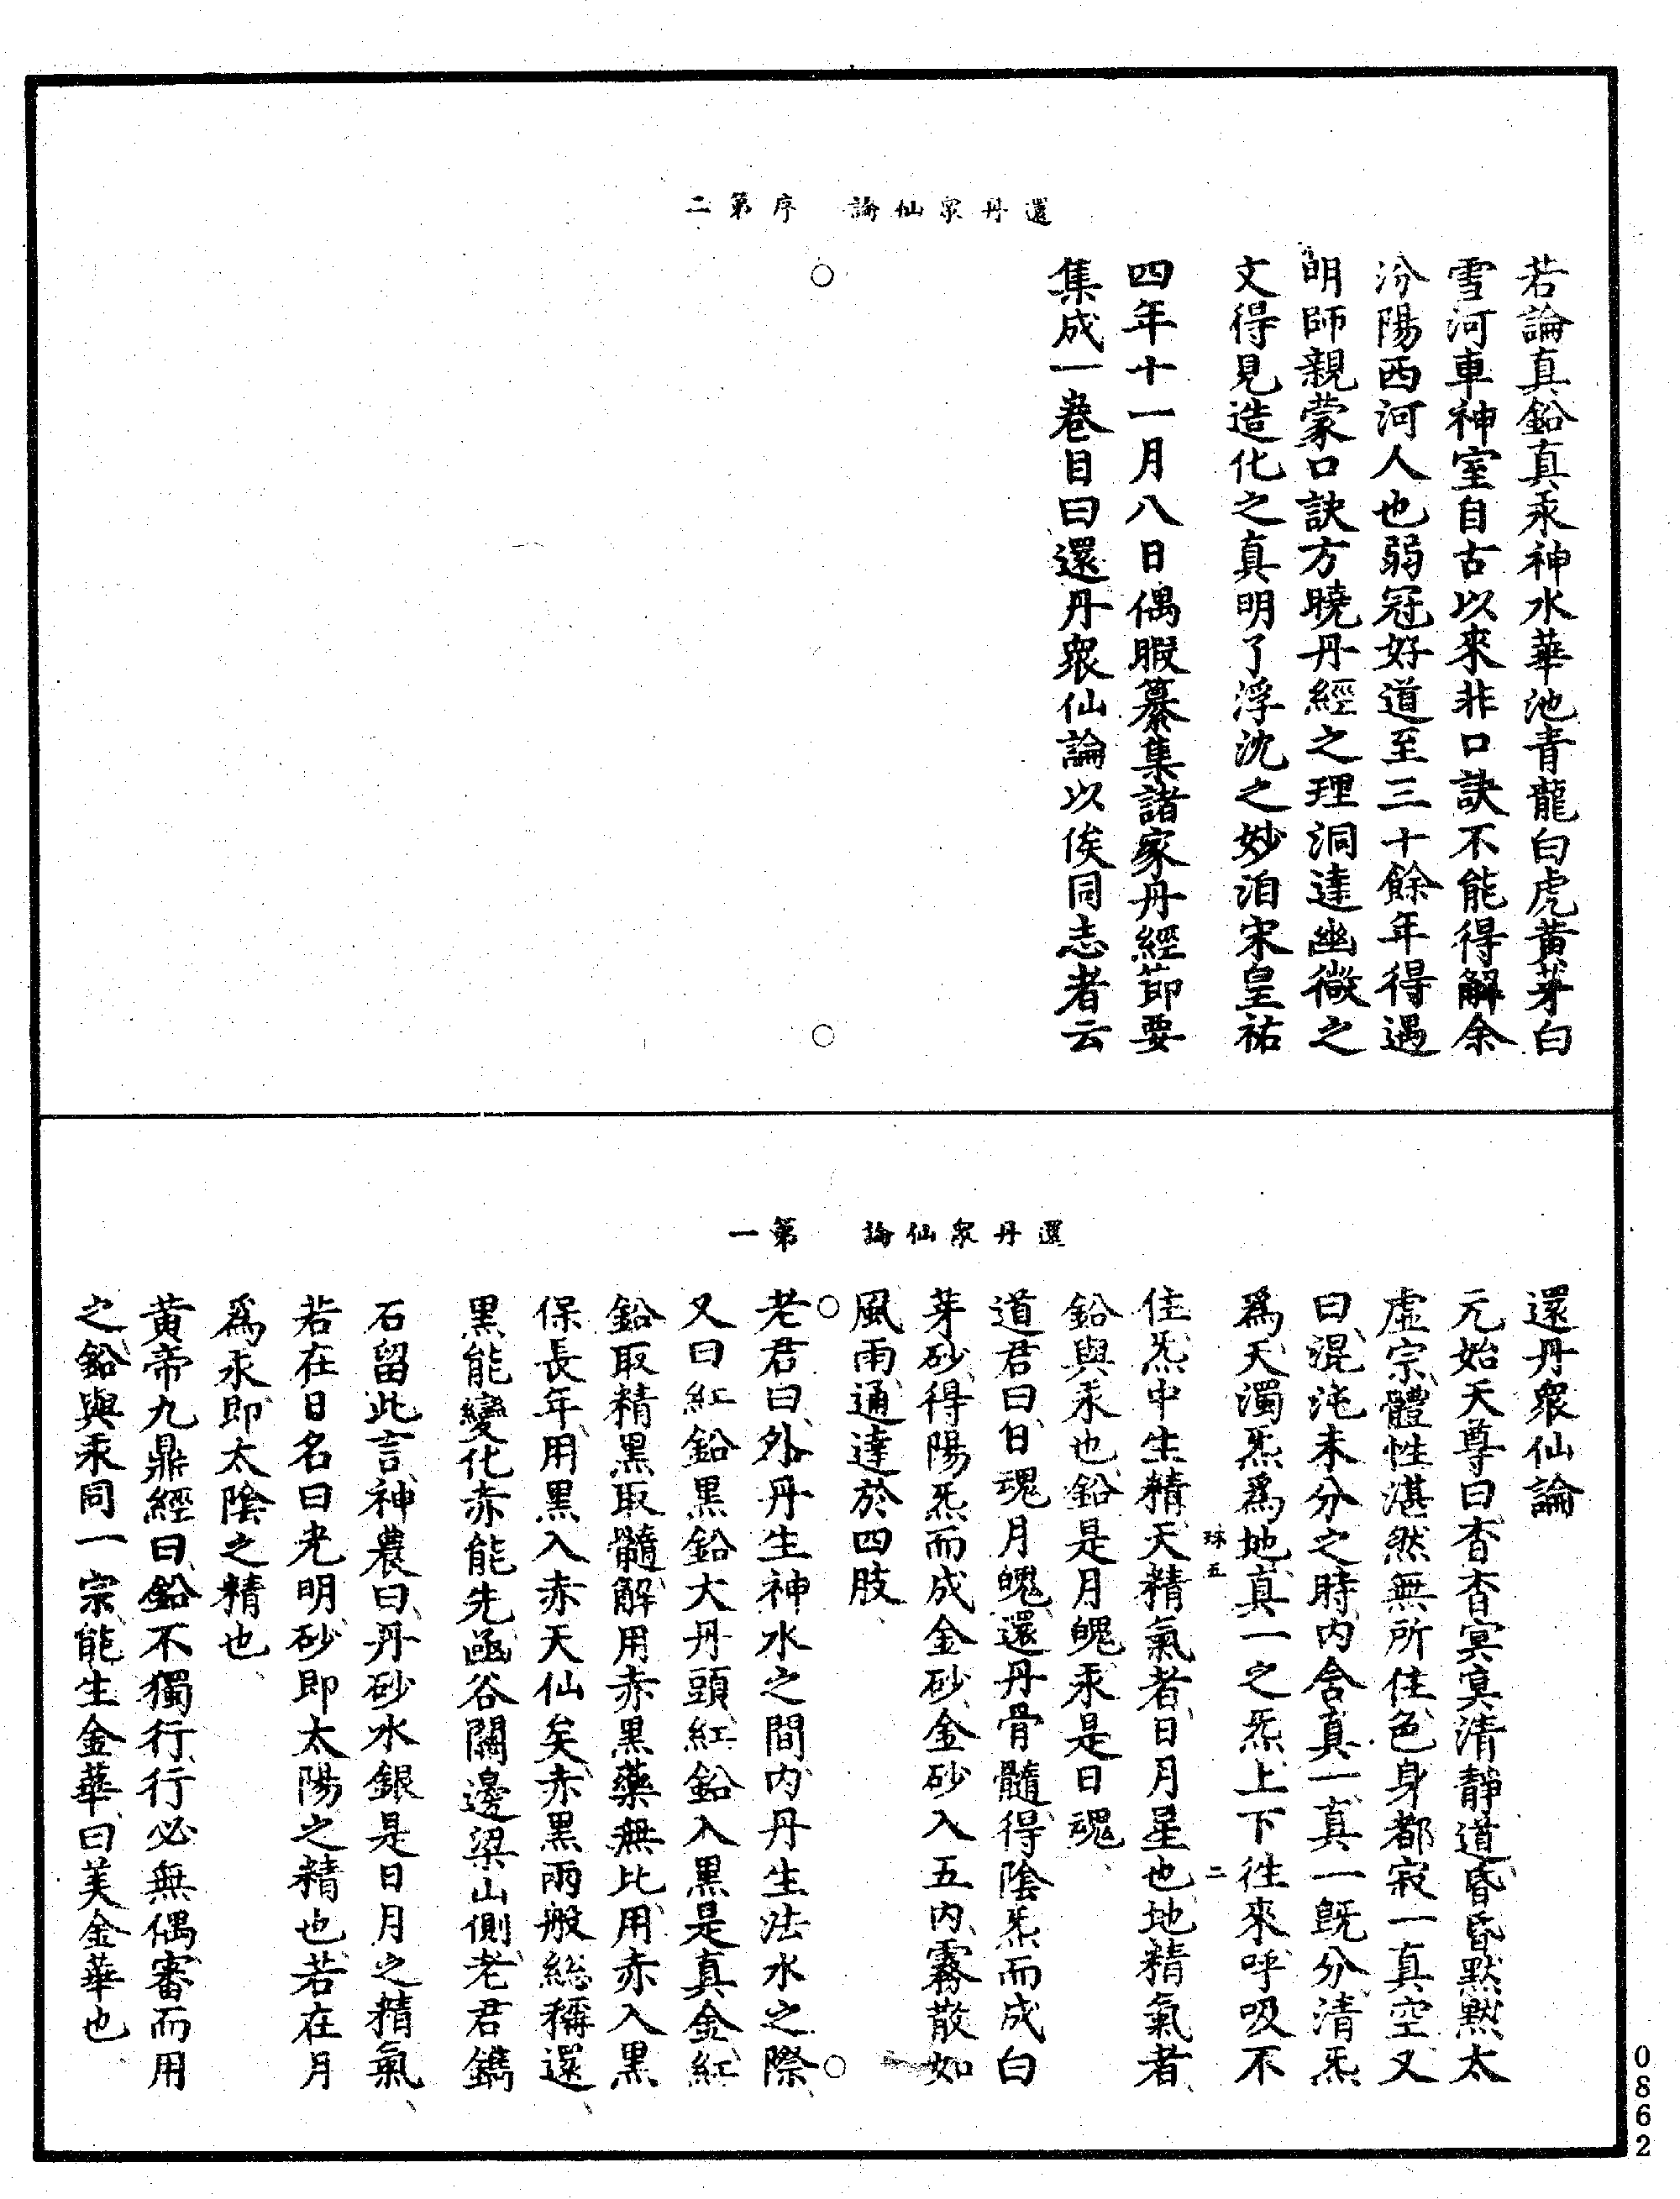 還丹眾仙論　序第二
若論真鉛真汞神水華池青龍白虎黃芽白
雪河車神室自古以來非口訣不能得解余
汾陽西河人也弱冠好道至三十餘年得遇
明師親蒙口訣方曉丹經之理洞達幽微之
文得見造化之真明了浮沈之妙洎宋皇祐
四年十一月八日偶暇纂集諸家丹經節要
集成一卷目曰還丹眾仙論以俟同志者云
還丹眾仙論　第一
還丹眾仙論
元始天尊曰杳杳冥冥清靜道昏昏默默太
虛宗體性湛然無所住色身都寂一真空又
曰混沌未分之時內含真一真一既分清炁
為天濁炁為地真一之炁上下往來呼吸不
珠五　二
住炁中生精天精氣者日月星也地精氣者
鉛與汞也鉛是月魄汞是日魂
道君曰日魂月魄還丹骨髓得陰炁而成白
芽砂得陽炁而成金砂金砂入五內霧散如
風雨通達於四肢
老君曰外丹生神水之間內丹生法水之際
又曰紅鉛黑鉛大丹頭紅鉛入黑是真金紅
鉛取精黑取髓解用赤黑黑藥無比用赤入黑
保長年用黑入赤天仙矣赤黑兩般總稱還
黑能變化赤能先函谷關邊梁山側老君鐫
石留此言神農曰丹砂水銀是日月之精氣
若在日名曰光明砂即太陽之精也若在月
為汞即太陰之精也
黃帝九鼎經曰鉛不獨行行必無偶審而用
之鉛與汞同一宗能生金華曰美金華也
0862